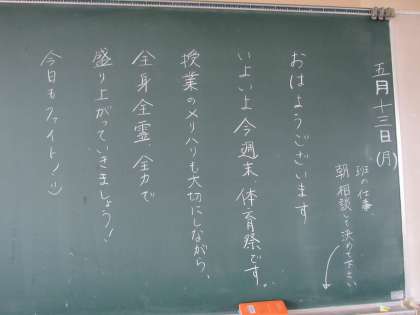 五月十三日(月)
班の仕事
朝相談して決めて下さい
おはようございます
いよいよ今週末、体育祭です。
授業のメリハリも大切にしながら、
全身全霊、全力で
盛り上がっていきましょう!
今日もファイト!:)